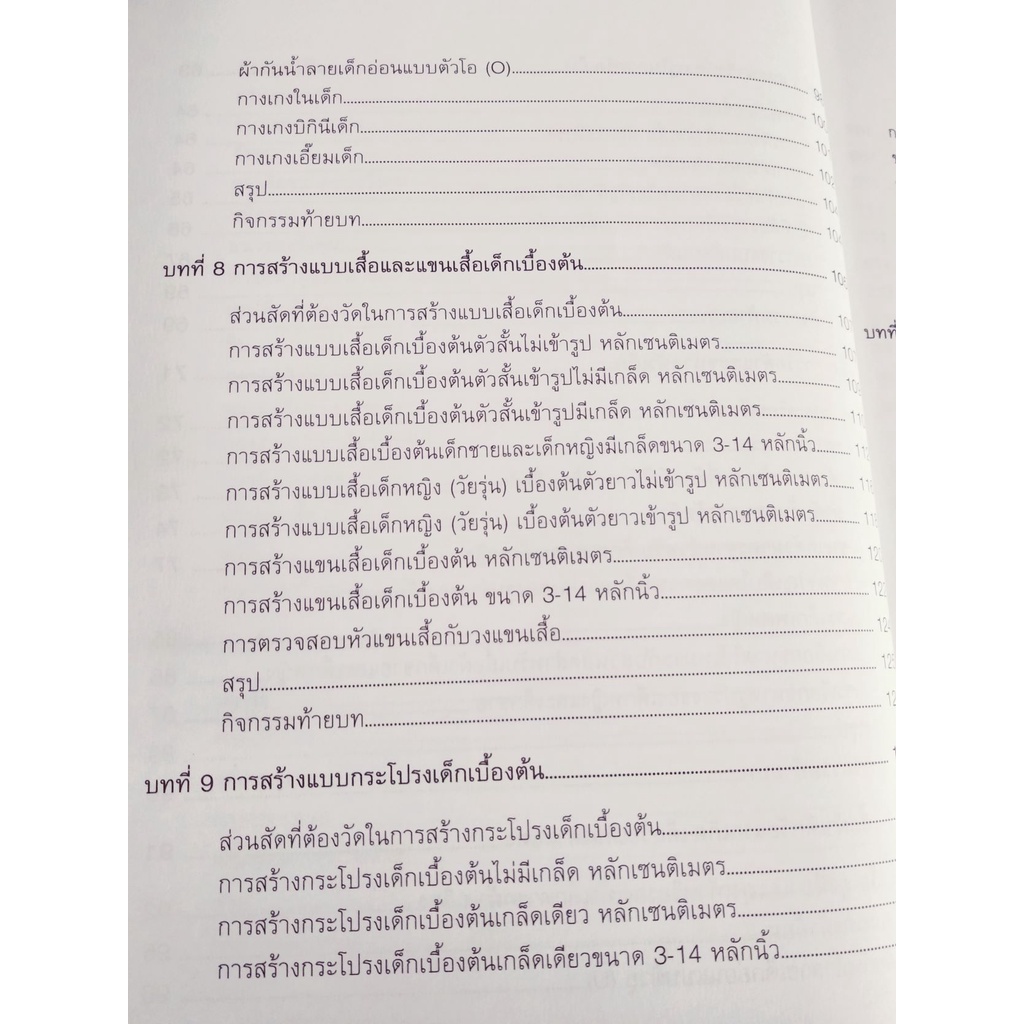 ผ้ากันน้ำลายเด็กอ่อนแบบตัวโอ (O)
กางเกงในเด็ก
กางเกงบิกินีเด็ก
กางเกงเอี๊ยมเด็ก
สรุป
กิจกรรมท้ายบท
บทที่ 8 การสร้างแบบเสื้อและแขนเสื้อเด็กเบื้องต้น
ส่วนสัดที่ต้องวัดในการสร้างแบบเสื้อเด็กเบื้องต้น
การสร้างแบบเสื้อเด็กเบื้องต้นตัวสั้นไม่เข้ารูป หลักเซนติเมตร
การสร้างแบบเสื้อเด็กเบื้องต้นตัวสั้นเข้ารูปไม่มีเกล็ด หลักเซนติเมตร
การสร้างแบบเสื้อเด็กเบื้องต้นตัวสั้นเข้ารูปมีเกล็ด หลักเซนติเมตร
การสร้างแบบเสื้อเบื้องต้นเด็กชายและเด็กหญิงมีเกล็ดขนาด 3-14 หลักนิ้ว
การสร้างแบบเสื้อเด็กหญิง (วัยรุ่น) เบื้องต้นตัวยาวไม่เข้ารูป หลักเซนติเมตร
การสร้างแบบเสื้อเด็กหญิง (วัยรุ่น) เบื้องต้นตัวยาวเข้ารูป หลักเซนติเมตร
การสร้างแขนเสื้อเด็กเบื้องต้น หลักเซนติเมตร
การสร้างแขนเสื้อเด็กเบื้องต้น ขนาด 3-14 หลักนิ้ว
การตรวจสอบหัวแขนเสื้อกับวงแขนเสื้อ
สรุป
กิจกรรมท้ายบท
บทที่ 9 การสร้างแบบกระโปรงเด็กเบื้องต้น
ส่วนสัดที่ต้องวัดในการสร้างกระโปรงเด็กเบื้องต้น
การสร้างกระโปรงเด็กเบื้องต้นไม่มีเกล็ด หลักเซนติเมตร
การสร้างกระโปรงเด็กเบื้องต้นเกล็ดเดียว หลักเซนติเมตร
การสร้างกระโปรงเด็กเบื้องต้นเกล็ดเดียวขนาด 3-14 หลักนิ้ว
บทที่